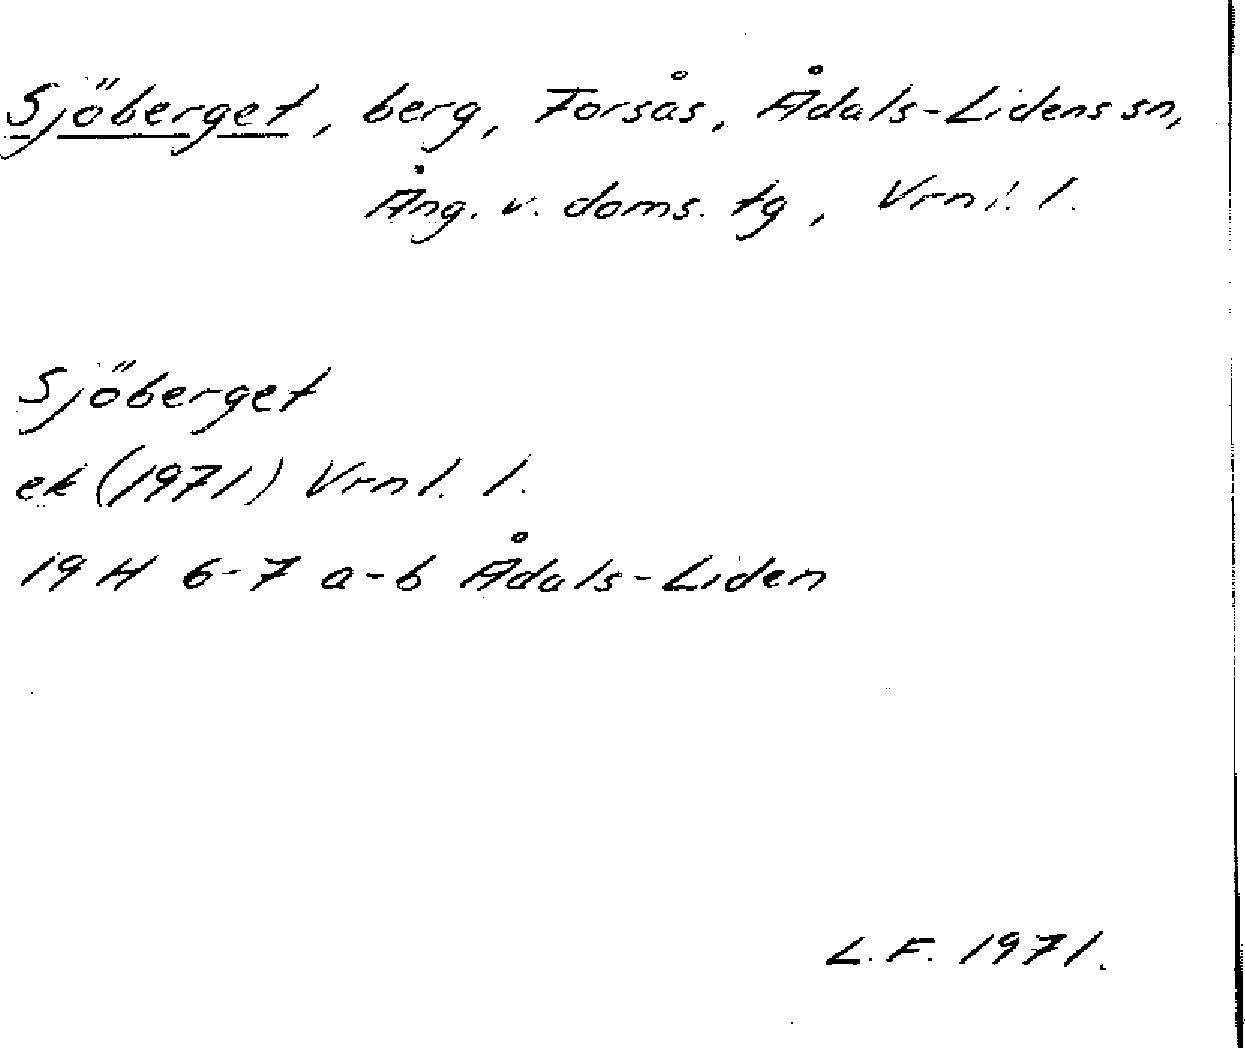 Sjöberget, berg, Forsås, Ådals-Lidens sn,
Ång. v. doms. tg, Vrnl. l.
Sjöberget
ek (1971) Vrnl. l.
19 H 6-7 a-b Ådals-Liden
L.F. 1971.